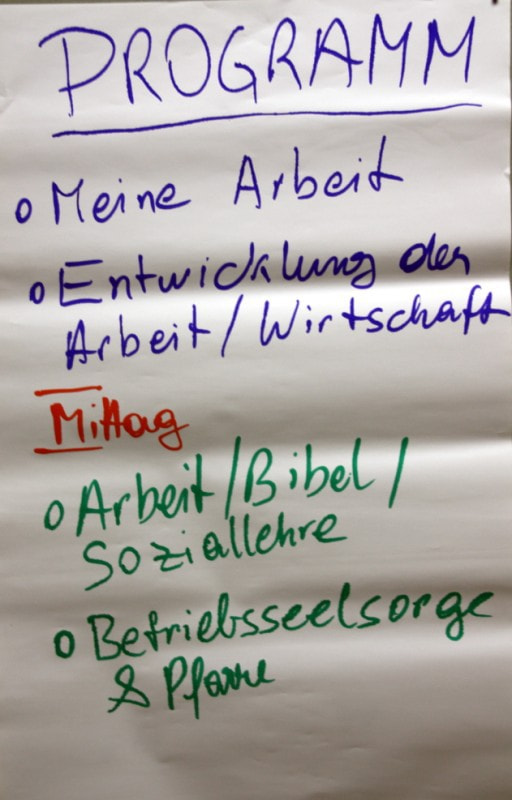 PROGRAMM
o Meine Arbeit
o Entwicklung der
Arbeit/Wirtschaft
Mittag
o Arbeit/Bibel/
Soziallehre
o Betriebsseelsorge
& Pfarre